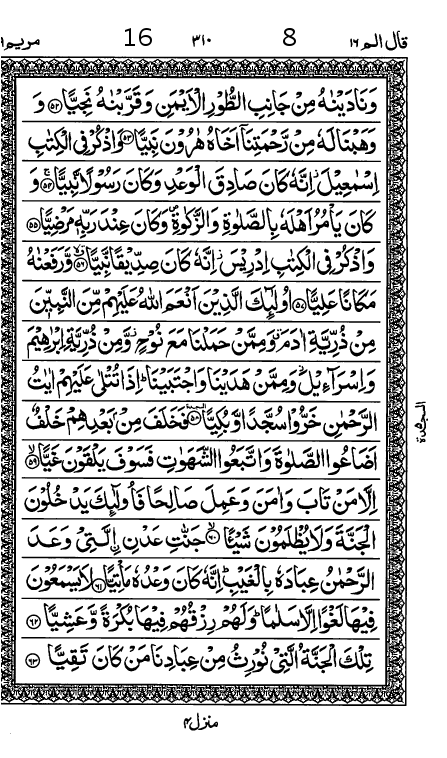 قال الم ١٦ 8 ٣١٠ 16 مريم ١٩
وَنَادَيْنٰهُ مِنْ جَانِبِ الطُّوْرِ الْاَيْمَنِ وَقَرَّبْنٰهُ نَجِيًّا ﴿٥٢﴾ وَ
وَهَبْنَا لَهٗ مِنْ رَّحْمَتِنَآ اَخَاهُ هٰرُوْنَ نَبِيًّا ﴿٥٣﴾ وَاذْكُرْ فِى الْكِتٰبِ
اِسْمٰعِيْلَ ۫ اِنَّهٗ كَانَ صَادِقَ الْوَعْدِ وَكَانَ رَسُوْلًا نَّبِيًّا ﴿٥٤﴾ وَ
كَانَ يَاْمُرُ اَهْلَهٗ بِالصَّلٰوةِ وَالزَّكٰوةِ ۪ وَكَانَ عِنْدَ رَبِّهٖ مَرْضِيًّا ﴿٥٥﴾
وَاذْكُرْ فِى الْكِتٰبِ اِدْرِيْسَ ۫ اِنَّهٗ كَانَ صِدِّيْقًا نَّبِيًّا ﴿٥٦﴾ وَّرَفَعْنٰهُ
مَكَانًا عَلِيًّا ﴿٥٧﴾ اُولٰٓئِكَ الَّذِيْنَ اَنْعَمَ اللّٰهُ عَلَيْهِمْ مِّنَ النَّبِيّٖنَ
مِنْ ذُرِّيَّةِ اٰدَمَ ۗ وَمِمَّنْ حَمَلْنَا مَعَ نُوْحٍ ۫ وَّمِنْ ذُرِّيَّةِ اِبْرٰهِيْمَ
وَاِسْرَآءِيْلَ ۫ وَمِمَّنْ هَدَيْنَا وَاجْتَبَيْنَا ؕ اِذَا تُتْلٰى عَلَيْهِمْ اٰيٰتُ
الرَّحْمٰنِ خَرُّوْا سُجَّدًا وَّبُكِيًّا ﴿٥٨﴾ فَخَلَفَ مِنْۢ بَعْدِهِمْ خَلْفٌ
اَضَاعُوا الصَّلٰوةَ وَاتَّبَعُوا الشَّهَوٰتِ فَسَوْفَ يَلْقَوْنَ غَيًّا ﴿٥٩﴾
اِلَّا مَنْ تَابَ وَاٰمَنَ وَعَمِلَ صَالِحًا فَاُولٰٓئِكَ يَدْخُلُوْنَ
الْجَنَّةَ وَلَا يُظْلَمُوْنَ شَيْئًا ﴿٦٠﴾ جَنّٰتِ عَدْنِ ۨالَّتِىْ وَعَدَ
الرَّحْمٰنُ عِبَادَهٗ بِالْغَيْبِ ؕ اِنَّهٗ كَانَ وَعْدُهٗ مَاْتِيًّا ﴿٦١﴾ لَا يَسْمَعُوْنَ
فِيْهَا لَغْوًا اِلَّا سَلٰمًا ؕ وَلَهُمْ رِزْقُهُمْ فِيْهَا بُكْرَةً وَّعَشِيًّا ﴿٦٢﴾
تِلْكَ الْجَنَّةُ الَّتِىْ نُوْرِثُ مِنْ عِبَادِنَا مَنْ كَانَ تَقِيًّا ﴿٦٣﴾
السجدة
منزل ٤